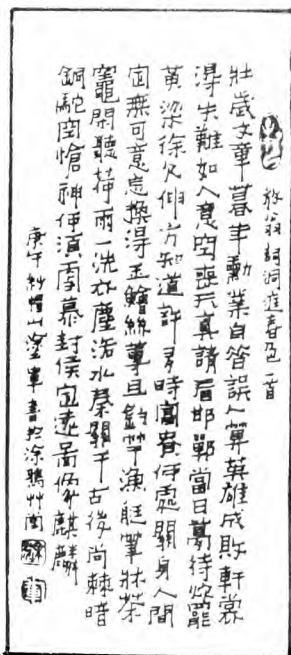 放翁詞洞庭春色一首
壯歲文章暮年勳業自昔誤人算英雄成敗軒裳
得失難如人意空喪天真請看邯鄲當日夢待炊罷
黃梁徐欠伸方知道許多時富貴何處關身人間
定無可意怎換得玉鱠絲蓴且釣竿漁艇筆牀茶
竈閑聽荷雨一洗衣塵洛水秦關千古後尚棘暗
銅駝空愴神何須慕封侯定遠圖像麒麟
庚午紗帽山塗軍書於涂鴉艸閣